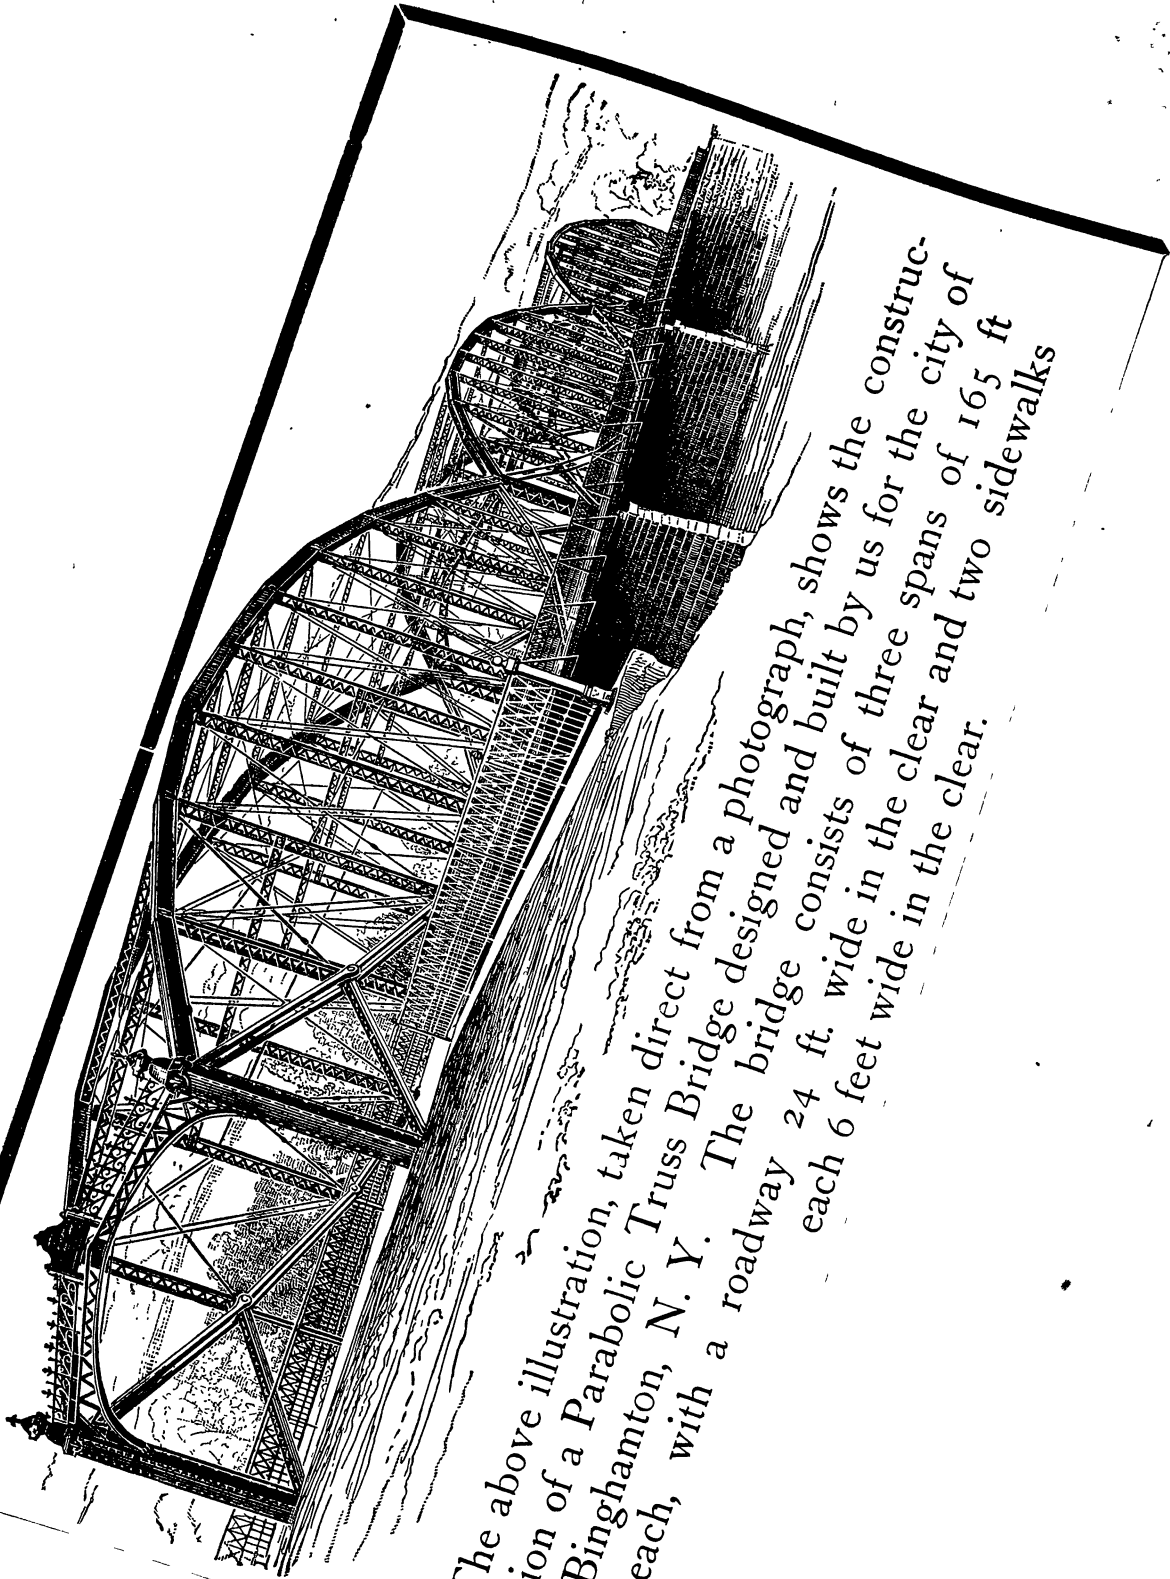 The above illustration, taken direct from a photograph, shows the construc-
ion of a Parabolic Truss Bridge designed and built by us for the city of
Binghamton, N. Y. The bridge consists of three spans of 165 ft
each, with a roadway 24 ft. wide in the clear and two sidewalks
each 6 feet wide in the clear.